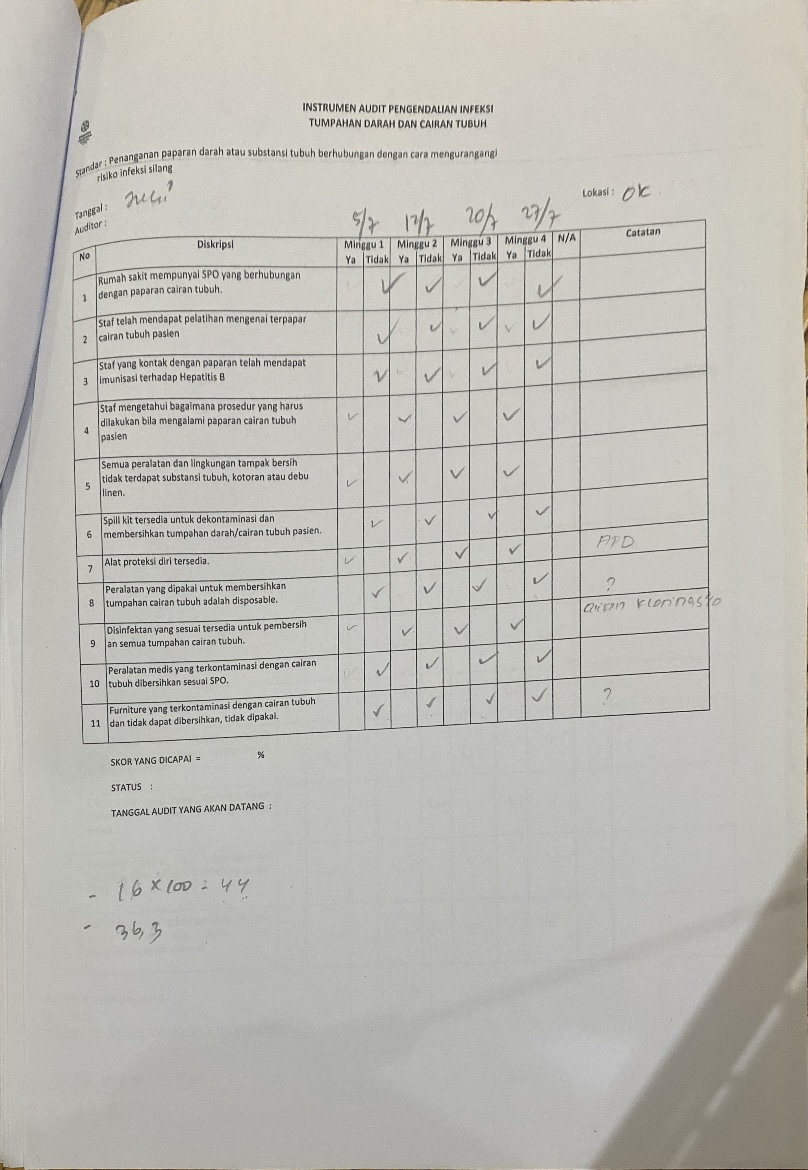 INSTRUMEN AUDIT PENGENDALIAN INFEKSI
TUMPAHAN DARAH DAN CAIRAN TUBUH
Standar : Penanganan paparan darah atau substansi tubuh berhubungan dengan cara mengurangangi
risiko infeksi silang
Tanggal :
Lokasi : OK
Auditor :
5/7 12/7 20/7 27/7
No Diskripsi Minggu 1 Minggu 2 Minggu 3 Minggu 4 N/A Catatan
Ya Tidak Ya Tidak Ya Tidak Ya Tidak
1 Rumah sakit mempunyai SPO yang berhubungan
dengan paparan cairan tubuh. ✓ ✓ ✓ ✓
2 Staf telah mendapat pelatihan mengenai terpapar
cairan tubuh pasien ✓ ✓ ✓ ✓
3 Staf yang kontak dengan paparan telah mendapat
imunisasi terhadap Hepatitis B ✓ ✓ ✓ ✓
4 Staf mengetahui bagaimana prosedur yang harus
dilakukan bila mengalami paparan cairan tubuh
pasien ✓ ✓ ✓ ✓
5 Semua peralatan dan lingkungan tampak bersih
tidak terdapat substansi tubuh, kotoran atau debu
linen. ✓ ✓ ✓ ✓
6 Spill kit tersedia untuk dekontaminasi dan
membersihkan tumpahan darah/cairan tubuh pasien. ✓ ✓ ✓ ✓
7 Alat proteksi diri tersedia. ✓ ✓ ✓ ✓ APD
8 Peralatan yang dipakai untuk membersihkan
tumpahan cairan tubuh adalah disposable. ✓ ✓ ✓ ✓ ?
9 Disinfektan yang sesuai tersedia untuk pembersih
an semua tumpahan cairan tubuh. ✓ ✓ ✓ ✓ cairan klorin 0,5%
10 Peralatan medis yang terkontaminasi dengan cairan
tubuh dibersihkan sesuai SPO. ✓ ✓ ✓ ✓
11 Furniture yang terkontaminasi dengan cairan tubuh
dan tidak dapat dibersihkan, tidak dipakai. ✓ ✓ ✓ ✓ ?
SKOR YANG DICAPAI = %
STATUS :
TANGGAL AUDIT YANG AKAN DATANG :
- 16 x 100 = 44
- 36,3